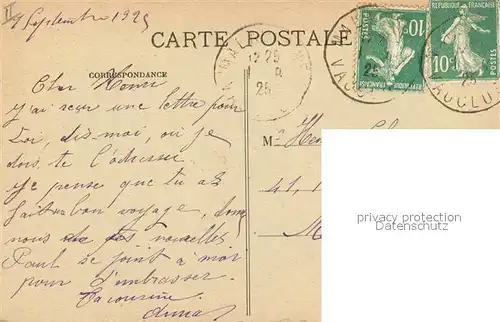 9 Septembre 1925
CARTE POSTALE
CORRESPONDANCE
Cher
J'ai reçu une lettre pour
toi, dis-moi, où je
dois te l'adresser
Je pense que tu as
fait un bon voyage, donne
nous de tes nouvelles
Paul se joint à moi
pour t'embrasser.
Ta cousine,
Anna
12 25
25
REPUBLIQUE FRANÇAISE
10c
POSTES
REPUBLIQUE FRANÇAISE
10c
POSTES
VAUCLUSE
25
M
41, 1
privacy protection
Datenschutz